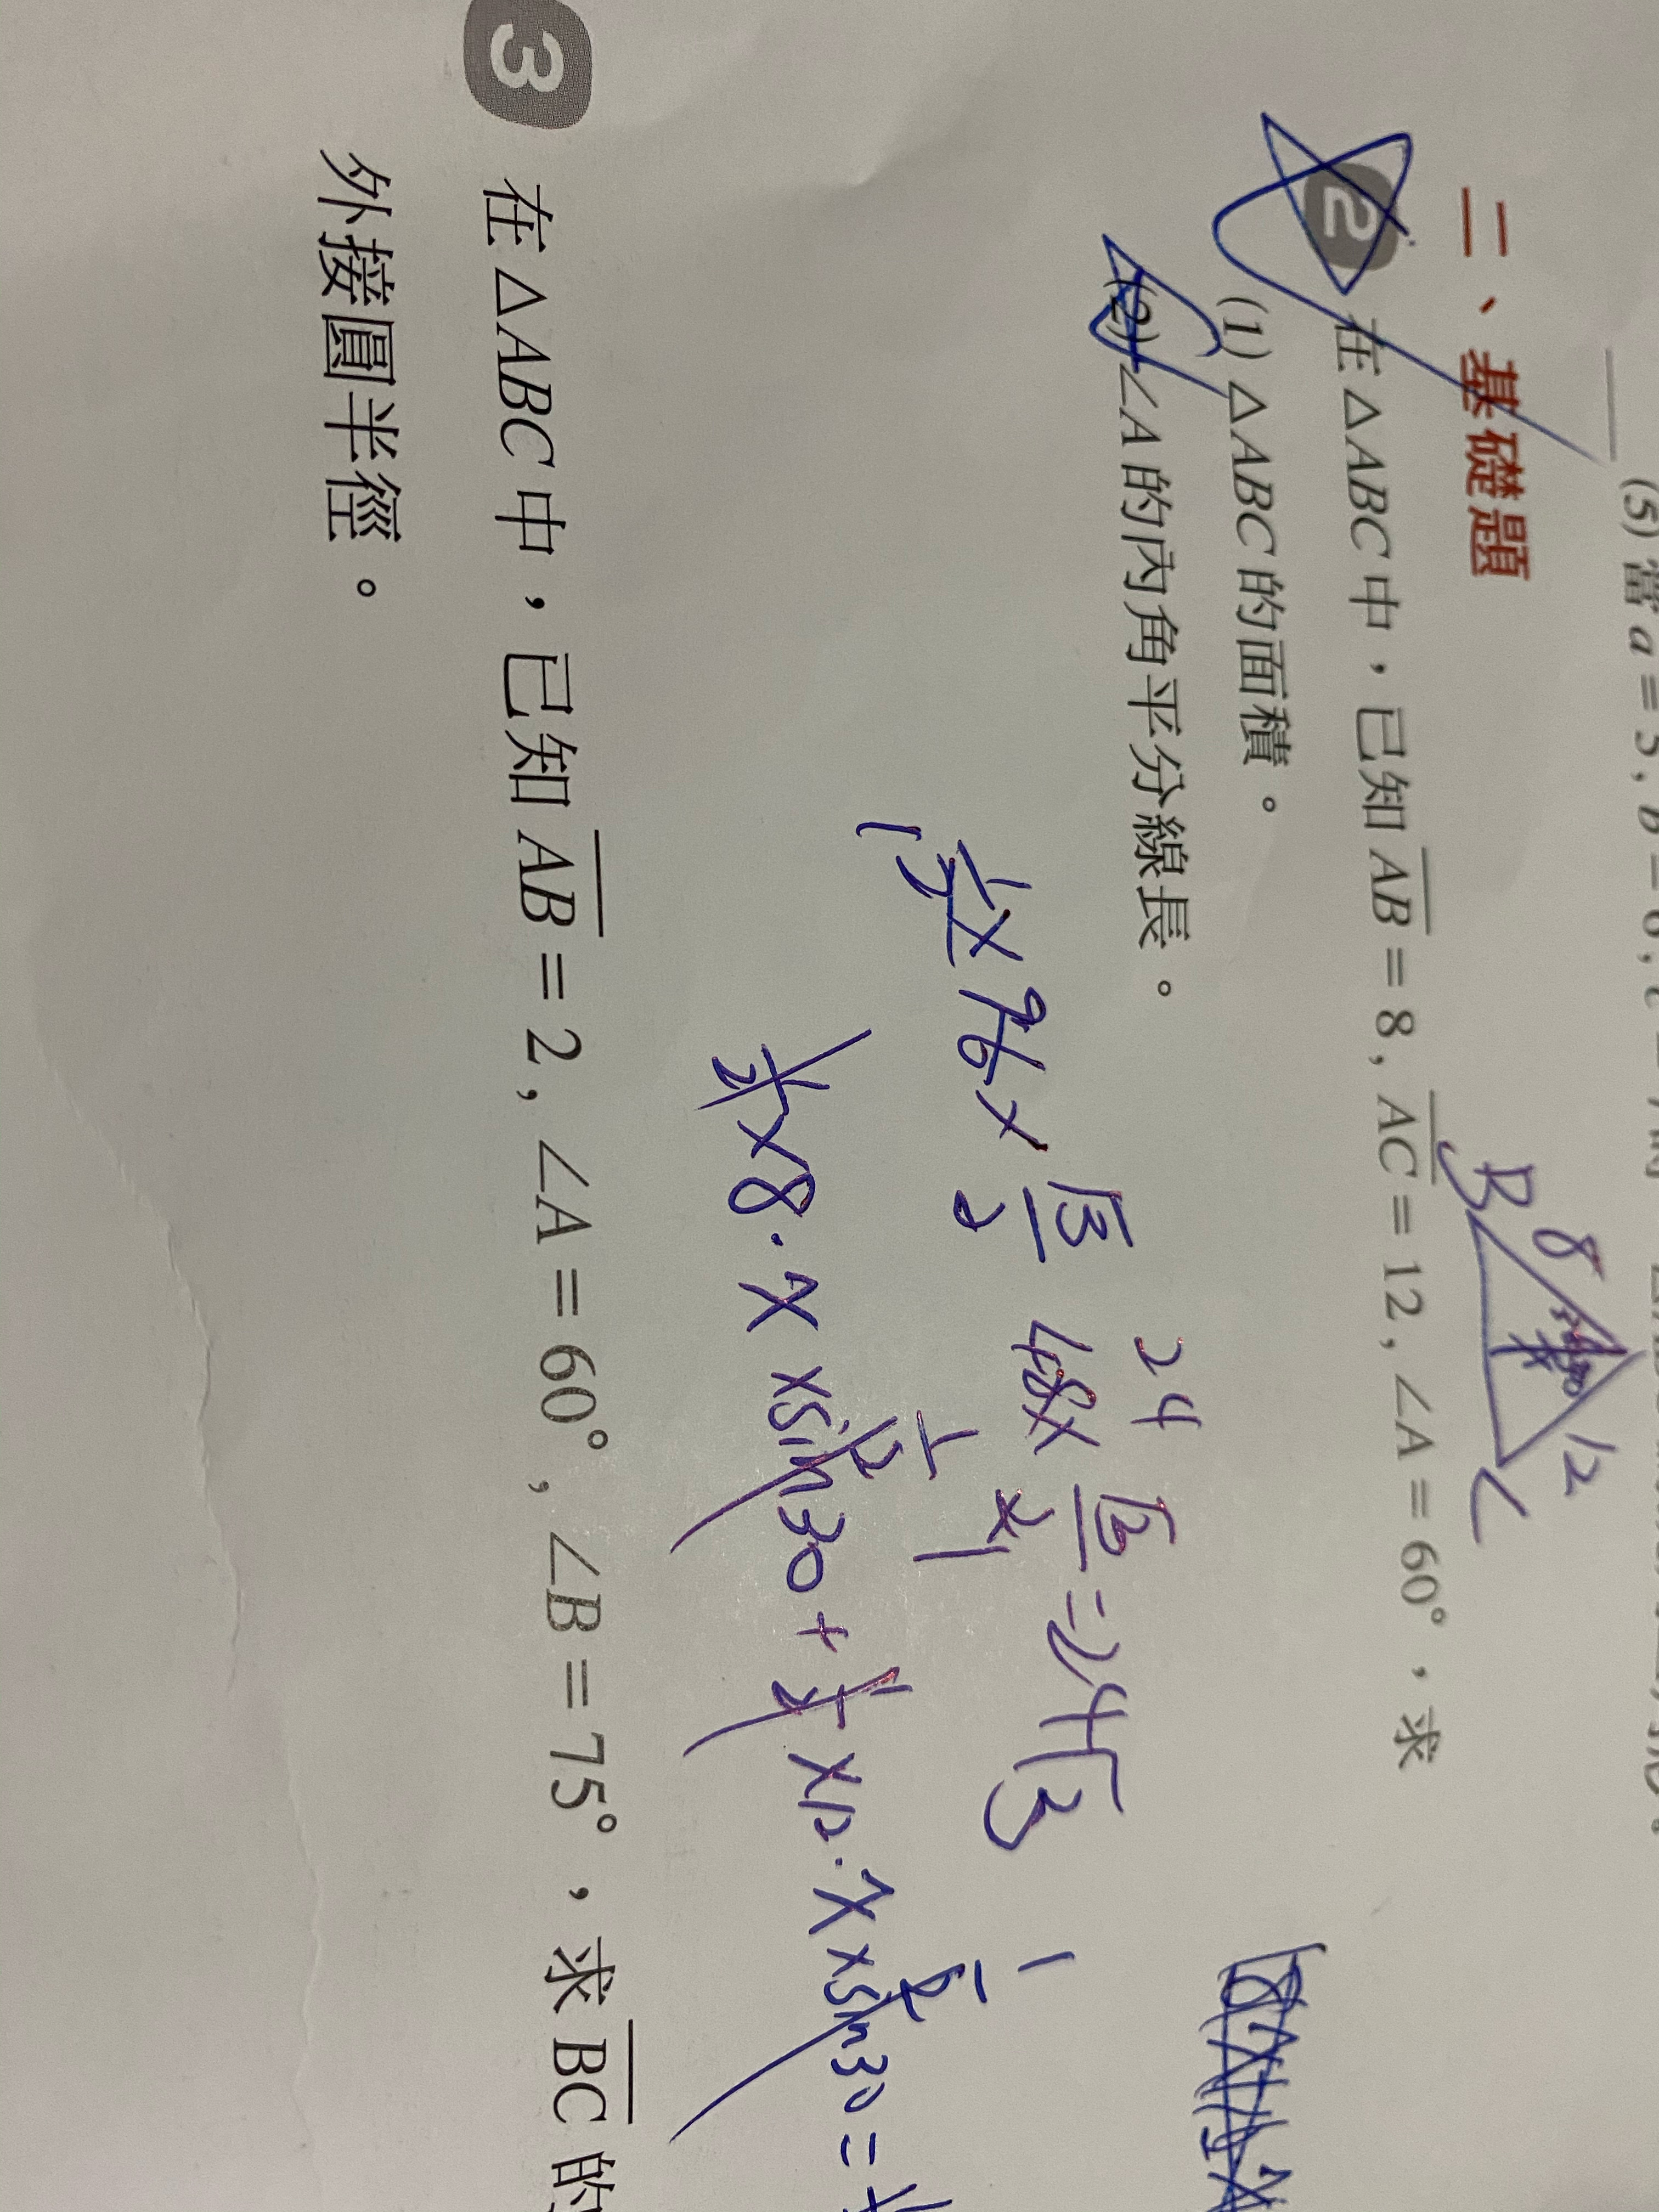 (5) 當 a = 5, b = 6, c
二、基礎題
B 8 12 C
2 在△ABC中，已知 AB = 8, AC = 12, ∠A = 60°，求
(1) △ABC 的面積。
(2) ∠A 的內角平分線長。
1/2 × 96 × √3/2 48 × √3/2 = 24√3
24
1/2 × 8 · x × sin30 + 1/2 × 12 · x × sin30 =
1/2
3 在△ABC中，已知 AB = 2, ∠A = 60°, ∠B = 75°，求 BC 的
外接圓半徑。